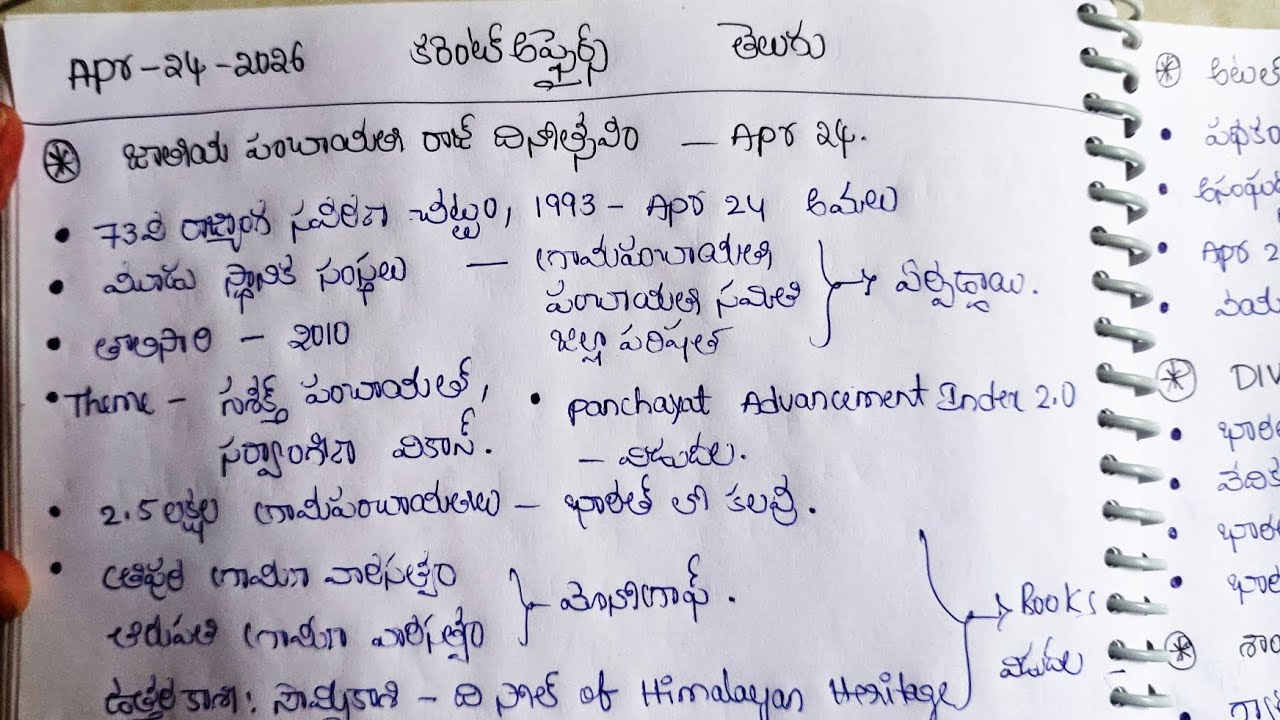 Apr-24-2026 కరెంట్ అఫైర్స్ తెలుగు
జాతీయ పంచాయతీ రాజ్ దినోత్సవం — Apr 24.
• 73వ రాజ్యాంగ సవరణ చట్టం, 1993 - Apr 24 అమలు
• మూడు స్థానిక సంస్థలు — గ్రామపంచాయతీ
పంచాయతీ సమితి
జిల్లా పరిషత్
→ ఏర్పడ్డాయి.
• తొలిసారి - 2010
• Theme - సశక్త్ పంచాయత్,
సర్వాంగీణ వికాస్.
• panchayat Advancement Index 2.0
- విడుదల.
• 2.5 లక్షల గ్రామపంచాయతీలు - భారత్ లో కలవు.
• త్రిపుర గ్రామీణ వారసత్వం
తిరుపతి గ్రామీణ వారసత్వం
మోనోగ్రాఫ్.
ఉత్తరకాశీ: సౌమ్యకాశీ - ది సోల్ of Himalayan Heritage
→ Books
విడుదల
Apr 2
DIV